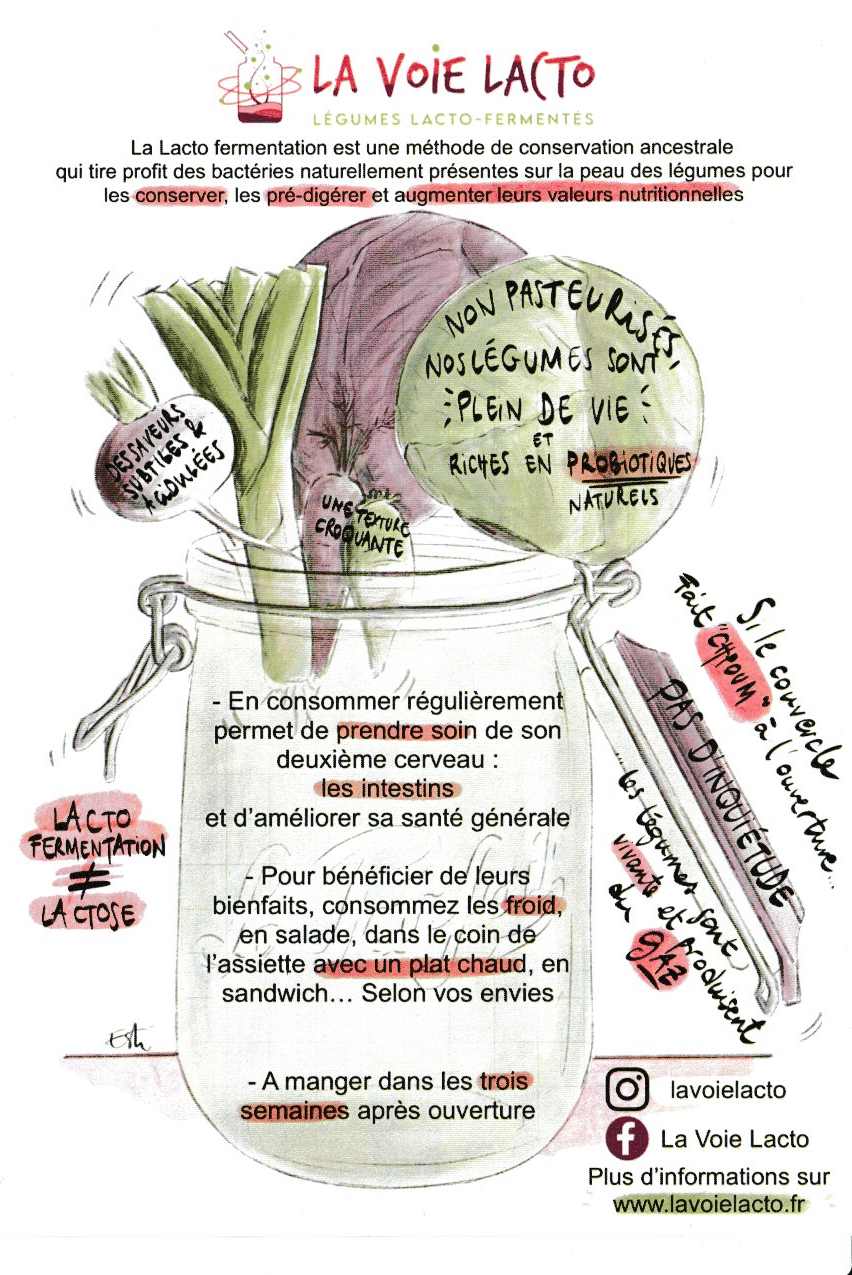 LA VOIE LACTO
LÉGUMES LACTO-FERMENTÉS
La Lacto fermentation est une méthode de conservation ancestrale
qui tire profit des bactéries naturellement présentes sur la peau des légumes pour
les conserver, les pré-digérer et augmenter leurs valeurs nutritionnelles
NON PASTEURISÉS,
NOS LÉGUMES SONT
PLEIN DE VIE
ET
RICHES EN PROBIOTIQUES
NATURELS
DES SAVEURS
SUBTILES &
ACIDULÉES
UNE TEXTURE
CROQUANTE
Si le couvercle
Fait "CHPOUM" à l'ouverture...
PAS D'INQUIÉTUDE
...les légumes sont
vivants et produisent
du GAZ
- En consommer régulièrement
permet de prendre soin de son
deuxième cerveau :
les intestins
et d'améliorer sa santé générale
LACTO
FERMENTATION
≠
LACTOSE
- Pour bénéficier de leurs
bienfaits, consommez les froid,
en salade, dans le coin de
l'assiette avec un plat chaud, en
sandwich... Selon vos envies
- A manger dans les trois
semaines après ouverture
lavoielacto
La Voie Lacto
Plus d'informations sur
www.lavoielacto.fr